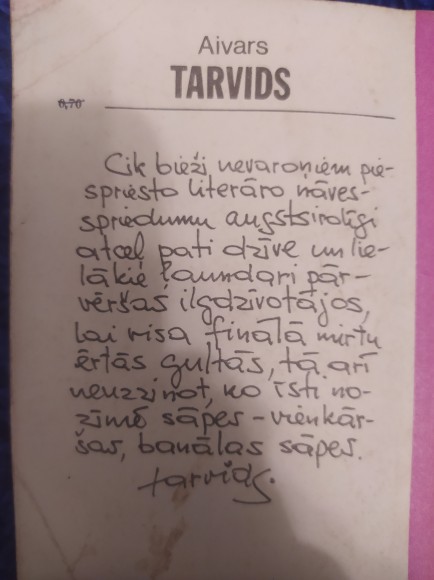 Aivars
TARVIDS
0,70
Cik bieži nevaroņiem pie-
spriesto literāro nāves-
spriedumu augstsirdīgi
atceļ pati dzīve un lie-
lākie ļaundari pār-
vēršas ilgdzīvotājos,
lai visa finālā mirtu
ērtās gultās, tā arī
neuzzinot, ko īsti no-
zīmē sāpes - vienkār-
šas, banālas sāpes.
tarvids.